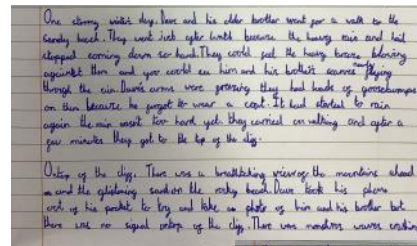 One stormy winter's day. Dave and his older brother went for a walk to the
sandy beach. They went just after lunch because the heavy rain and hail
stopped coming down so hard. They could feel the heavy breeze blowing
against them and you could see him and his brother's scarves flying
through the air. Dave's arms were freezing they had loads of goosebumps
on them because he forgot to wear a coat. It had started to rain
again the rain wasn't too hard yet. they carried on walking and after a
few minutes they got to the top of the cliff.
Ontop of the cliff. There was a breathtaking view of the mountains ahead
and the glistening sand on the rocky beach. Dave took his phone
out of his pocket to try and take a photo of him and his brother but
there was no signal ontop of the cliff. There was waves